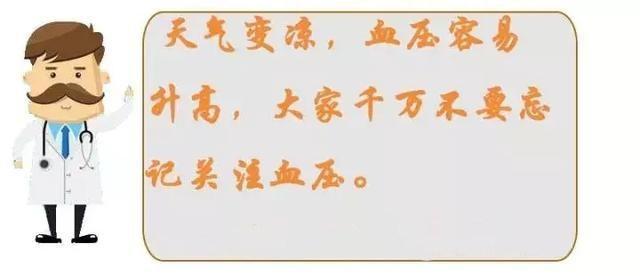 天气变凉，血压容易
升高，大家千万不要忘
记关注血压。